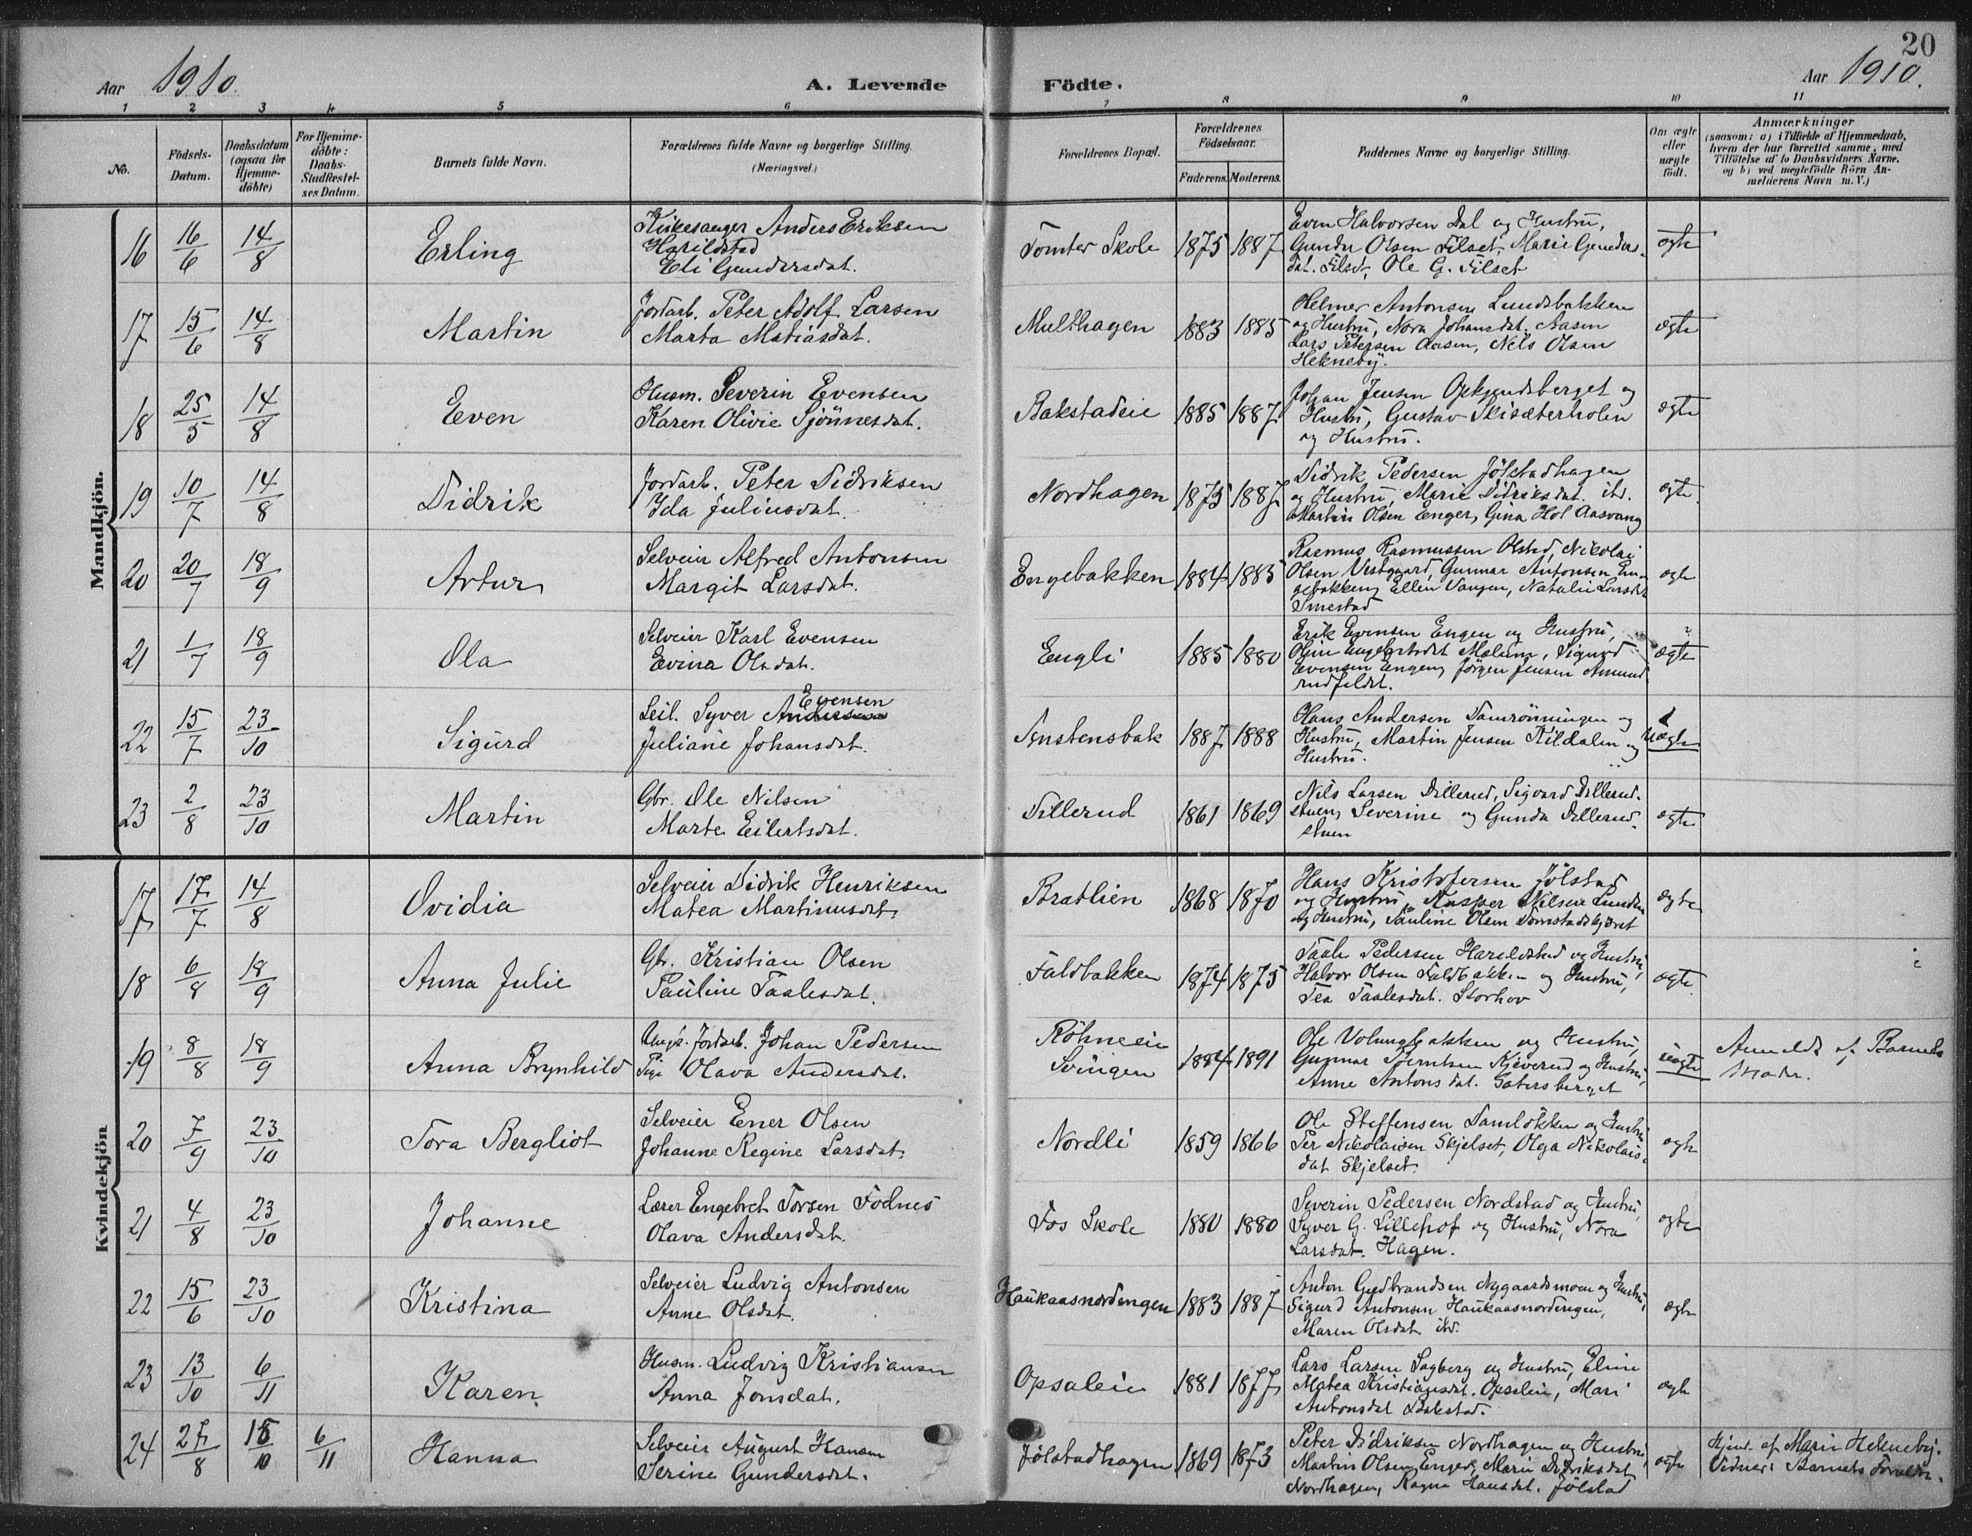 20
Aar 1910. A. Levende Födte. Aar 1910.
1 2 3 4 5 6 7 8 9 10 11
No.
Födsels-Datum.
Daabsdatum (ogsaa for Hjemme-döbte)
For Hjemme-döbte: Daabs-Stadfæstel-ses Datum.
Barnets fulde Navn.
Forældrenes fulde Navne og borgerlige Stilling.
(Næringsvei.)
Forældrenes Bopæl.
Forældrenes Födselsaar.
Faderens. Moderens.
Faddernes Navne og borgerlige Stilling.
Om ægte eller uægte födt.
Anmærkninger
(saasom: a) i Tilfælde af Hjemmedaab, hvem der har forrettet samme, med Tilföielse af to Daabsvidners Navne, og b) ved uægtefödte Börn An-melderens Navn m. V.)
Mandkjön.
16 16/6 14/8 Erling Kirkesanger Anders Eriksen Tomter Skole 1875 1887 Even Halvorsen Dal og Hustru, ægte
Harildstad Gunder Olsen Filset, Marie Gunders-
Eli Gundersdat. dat. Filset, Ole G. Filset
17 15/6 14/8 Martin Jordarb. Peter Adolf Larsen Multhagen 1883 1885 Helmer Antonsen Lundsbakken ægte
Marta Matiasdat. og Hustru, Nora Johansdat. Aasen
Lars Petersen Aasen, Nils Olsen
Hekneby.
18 25/5 14/8 Even Husm. Severin Evensen Bakstadeie 1885 1887 Johan Jensen Opkjendsberget og ægte
Karen Olivie Sjönnesdat. Hustru, Gustav Skisæterholen
og Hustru.
19 10/7 14/8 Didrik Jordarb. Peter Didriksen Nordhagen 1875 1887 Didrik Pedersen Jölstadhagen ægte
Ida Juliusdat. og Hustru, Marie Didriksdat. ibd.
Martin Olsen Enger, Gina Hol Aasvang
20 20/7 18/9 Artur Selveier Alfred Antonsen Engebakken 1884 1885 Rasmus Rasmussen Olstad, Nikolai ægte
Margit Larsdat. Olsen Vestgaard, Gunnar Antonsen En-
gebakken, Ellen Vangen, Natalie Larsdat
Smestad
21 1/7 18/9 Ola Selveier Karl Evensen Engli 1885 1880 Erik Evensen Engen og Hustru, ægte
Evina Olsdat. Olin Engebretsdat Mælum, Sigurd
Evensen Engen, Jörgen Jensen Amund
rudfeldet.
22 15/7 23/10 Sigurd Leil. Syver Andersen Evensen 1887 1888 Hans Andersen Damrönningen og uægte
Juliane Johansdat. Hustru, Martin Jensen Kildalen og
Hustru.
23 2/8 23/10 Martin Gbr. Ole Nilsen Dillerud 1861 1869 Nils Larsen Dillerud, Sigvard Dillerud- ægte
Marte Eilertsdat. stuen, Severine og Gunda Dillerud-
stuen
Kvindekjön
17 17/7 14/8 Ovidia Selveier Didrik Henriksen Bratlien 1868 1870 Hans Kristofersen Jölstad ægte
Matea Martinusdat. og Hustru, Kasper Nilsen Lunden
og Hustru, Pauline Olsen
18 6/8 18/9 Anna Julie Gbr. Kristian Olsen Faldbakken 1874 1875 Taale Pedersen Hareldstad og Hustru, ægte
Pauline Taalesdat. Halvor Olsen Faldbakken og Hustru,
Tea Taalesdat. Storhov
19 8/8 18/9 Anna Brynhild Ungk. Jordarb. Johan Pedersen Röhneeie 1884 1891 Ole Volungbakken og Hustru, uægte Anmeldt af Barnets
Pige Olava Andersdat. Svingen Gunnar Berntsen Kjeverud og Hustru, Moder.
Anne Antonsdat. Gabersberget
20 7/9 23/10 Tora Bergliot Selveier Ener Olsen Nordli 1859 1866 Ole Steffensen Damlökken og Hustru ægte
Johanne Regine Larsdat. Per Nikolaisen Skjelset, Olga Nikolais-
dat Skjelset.
21 4/8 23/10 Johanne Lærer Engebret Torsen Fodnes Fos Skole 1880 1880 Severin Pedersen Nordstad og Hustru, ægte
Olava Andersdat. Syver G. Lillehof og Hustru, Nora
Larsdat. Hagen.
22 15/6 23/10 Kristina Selveier Ludvig Antonsen Haukaasnordengen 1883 1887 Anton Gudbrandsen Nygaardsmoen og Hustru, ægte
Anne Olsdat. Sigurd Antonsen Haukaasnordengen,
Maren Olsdat ibd.
23 13/10 6/11 Karen Husm. Ludvig Kristiansen Opsaleie 1881 1877 Lars Larsen Sagberg og Hustru, Eline ægte
Anna Jonsdat. Matea Kristiansdat. Opsaleie, Mari
Antonsdat Bakstad.
24 27/8 15/10 6/11 Hanna Selveier August Hansen Jölstadhagen 1869 1873 Peter Didriksen Nordhagen og Hustru, ægte Hjmd. af Marie Hekneby.
Serine Gundersdat. Martin Olsen Enger, Marie Didriksdat. Vidner: Barnets Foreldre.
Nordhagen, Ragna Hansdat. Jölstad